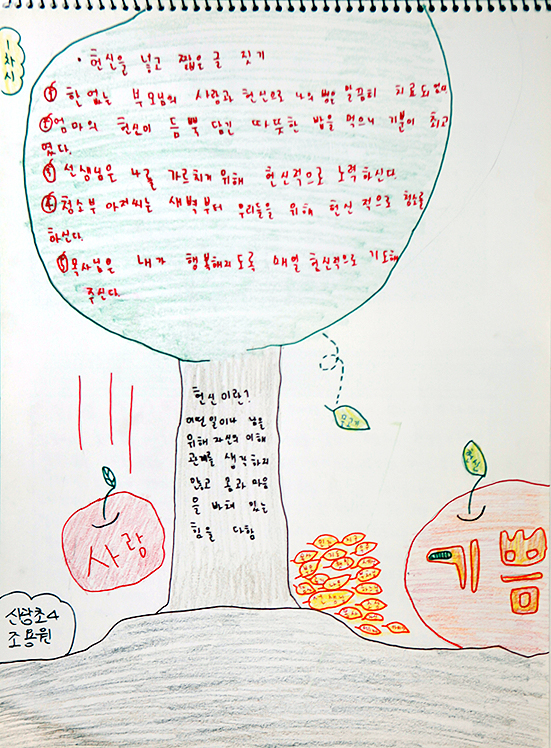 1차시
· 헌신을 넣고 짧은 글 짓기
① 한없는 부모님의 사랑과 헌신으로 나의 병은 말끔히 치료되었다
② 엄마의 헌신이 듬뿍 담긴 따뜻한 밥을 먹으니 기분이 최고
였다.
③ 선생님은 나를 가르치기 위해 헌신적으로 노력하신다.
④ 청소부 아저씨는 새벽부터 우리들을 위해 헌신적으로 청소를
하신다.
⑤ 목사님은 내가 행복해지도록 매일 헌신적으로 기도해
주신다.
헌신이란?
어떤 일이나 남을
위해 자신의 이해
관계를 생각하지
않고 몸과 마음
을 바쳐 있는
힘을 다함
사랑
기쁨
신남초4
조용원